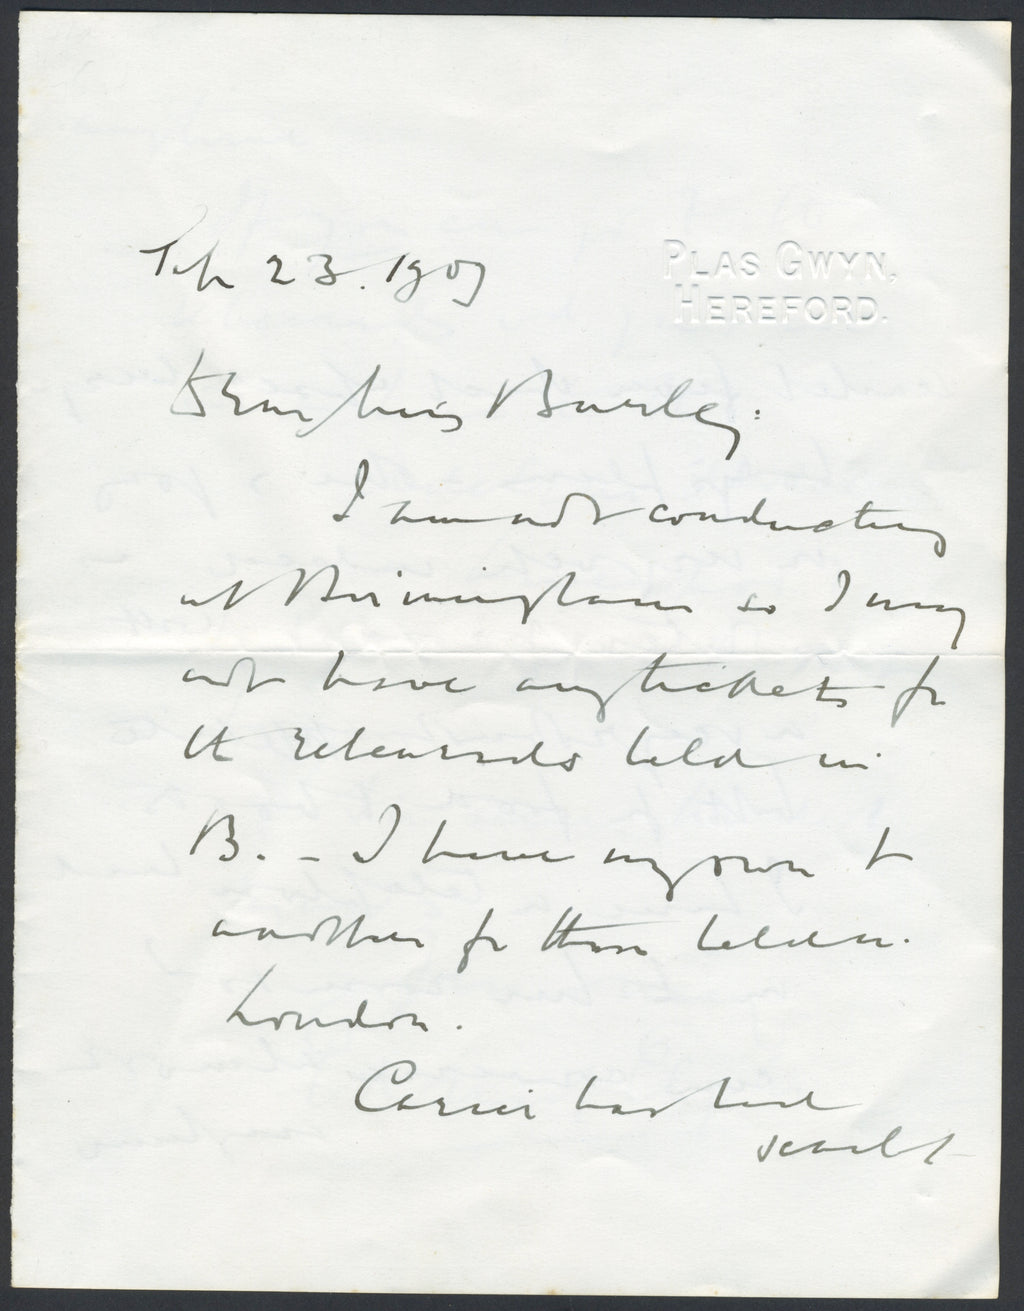 PLAS GWYN,
HEREFORD.
Sep 23. 1909
Dear Miss Burley:
I am not conducting
at Birmingham so I may
not have any tickets for
the rehearsals held in
B. – I have my own &
another for those held in
London.
Carice has had
scarlet